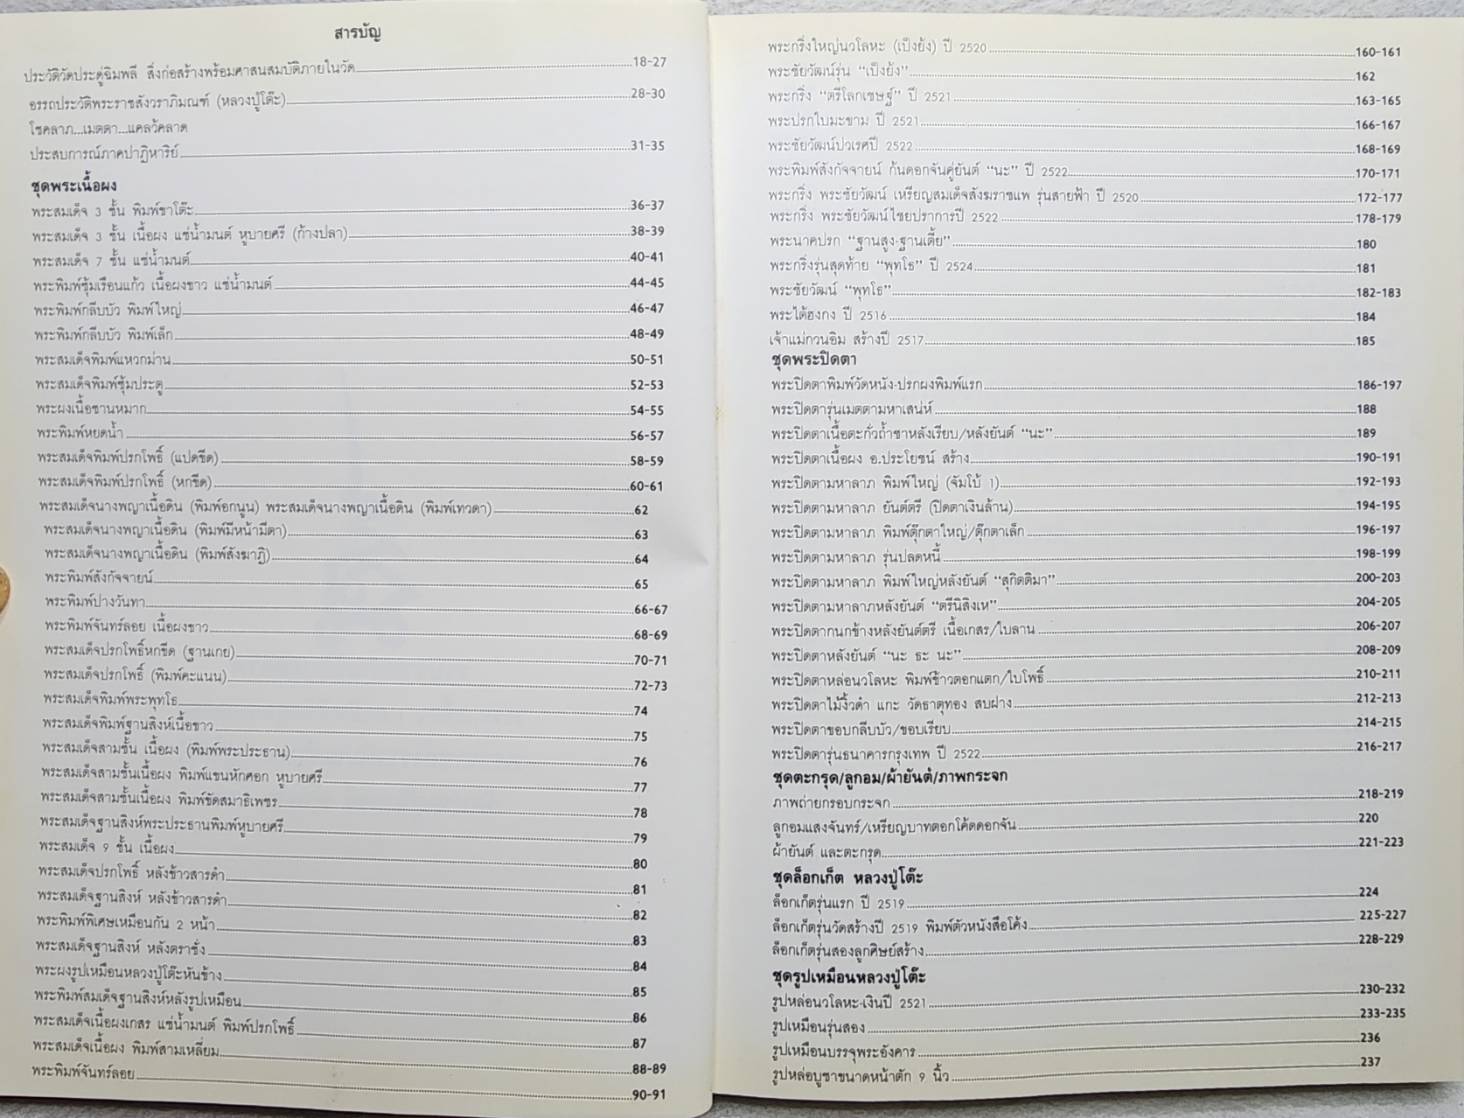 สารบัญ
ประวัติวัดประดู่ฉิมพลี สิ่งก่อสร้างพร้อมศาสนสมบัติภายในวัด 18-27
อรรถประวัติพระราชสังวราภิมณฑ์ (หลวงปู่โต๊ะ) 28-30
โชคลาภ...เมตตา...แคล้วคลาด
ประสบการณ์ภาคปาฏิหาริย์ 31-35
ชุดพระเนื้อผง
พระสมเด็จ 3 ชั้น พิมพ์ขาโต๊ะ 36-37
พระสมเด็จ 3 ชั้น เนื้อผง แช่น้ำมนต์ หูบายศรี (ก้างปลา) 38-39
พระสมเด็จ 7 ชั้น แช่น้ำมนต์ 40-41
พระพิมพ์ซุ้มเรือนแก้ว เนื้อผงขาว แช่น้ำมนต์ 44-45
พระพิมพ์กลีบบัว พิมพ์ใหญ่ 46-47
พระพิมพ์กลีบบัว พิมพ์เล็ก 48-49
พระสมเด็จพิมพ์แหวกม่าน 50-51
พระสมเด็จพิมพ์ซุ้มประตู 52-53
พระผงเนื้อชานหมาก 54-55
พระพิมพ์หยดน้ำ 56-57
พระสมเด็จพิมพ์ปรกโพธิ์ (แปดขีด) 58-59
พระสมเด็จพิมพ์ปรกโพธิ์ (หกขีด) 60-61
พระสมเด็จนางพญาเนื้อดิน (พิมพ์อกนูน) พระสมเด็จนางพญาเนื้อดิน (พิมพ์เทวดา) 62
พระสมเด็จนางพญาเนื้อดิน (พิมพ์มีหน้ามีตา) 63
พระสมเด็จนางพญาเนื้อดิน (พิมพ์สังฆาฏิ) 64
พระพิมพ์สังกัจจายน์ 65
พระพิมพ์ปางวันทา 66-67
พระพิมพ์จันทร์ลอย เนื้อผงขาว 68-69
พระสมเด็จปรกโพธิ์หกขีด (ฐานเกย) 70-71
พระสมเด็จปรกโพธิ์ (พิมพ์คะแนน) 72-73
พระสมเด็จพิมพ์พระพุทโธ 74
พระสมเด็จพิมพ์ฐานสิงห์เนื้อขาว 75
พระสมเด็จสามชั้น เนื้อผง (พิมพ์พระประธาน) 76
พระสมเด็จสามชั้นเนื้อผง พิมพ์แขนหักศอก หูบายศรี 77
พระสมเด็จสามชั้นเนื้อผง พิมพ์ขัดสมาธิเพชร 78
พระสมเด็จฐานสิงห์พระประธานพิมพ์หูบายศรี 79
พระสมเด็จ 9 ชั้น เนื้อผง 80
พระสมเด็จปรกโพธิ์ หลังข้าวสารดำ 81
พระสมเด็จฐานสิงห์ หลังข้าวสารดำ 82
พระพิมพ์พิเศษเหมือนกัน 2 หน้า 83
พระสมเด็จฐานสิงห์ หลังตราชั่ง 84
พระผงรูปเหมือนหลวงปู่โต๊ะหันข้าง 85
พระพิมพ์สมเด็จฐานสิงห์หลังรูปเหมือน 86
พระสมเด็จเนื้อผงเกสร แช่น้ำมนต์ พิมพ์ปรกโพธิ์ 87
พระสมเด็จเนื้อผง พิมพ์สามเหลี่ยม 88-89
พระพิมพ์จันทร์ลอย 90-91
พระกริ่งใหญ่นวโลหะ (เป็งย้ง) ปี 2520 160-161
พระชัยวัฒน์รุ่น “เป็งย้ง” 162
พระกริ่ง “ตรีโลกเชษฐ์” ปี 2521 163-165
พระปรกใบมะขาม ปี 2521 166-167
พระชัยวัฒน์ปวเรศปี 2522 168-169
พระพิมพ์สังกัจจายน์ ก้นดอกจันคู่ยันต์ “นะ” ปี 2522 170-171
พระกริ่ง พระชัยวัฒน์ เหรียญสมเด็จสังฆราชแพ รุ่นสายฟ้า ปี 2520 172-177
พระกริ่ง พระชัยวัฒน์ไชยปราการปี 2522 178-179
พระนาคปรก “ฐานสูง-ฐานเตี้ย” 180
พระกริ่งรุ่นสุดท้าย “พุทโธ” ปี 2524 181
พระชัยวัฒน์ “พุทโธ” 182-183
พระไต้ฮงกง ปี 2516 184
เจ้าแม่กวนอิม สร้างปี 2517 185
ชุดพระปิดตา
พระปิดตาพิมพ์วัดหนัง-ปรกผงพิมพ์แรก 186-197
พระปิดตารุ่นเมตตามหาเสน่ห์ 188
พระปิดตาเนื้อตะกั่วถ้ำชาหลังเรียบ/หลังยันต์ “นะ” 189
พระปิดตาเนื้อผง อ.ประโยชน์ สร้าง 190-191
พระปิดตามหาลาภ พิมพ์ใหญ่ (จัมโบ้ 1) 192-193
พระปิดตามหาลาภ ยันต์ตรี (ปิดตาเงินล้าน) 194-195
พระปิดตามหาลาภ พิมพ์ตุ๊กตาใหญ่/ตุ๊กตาเล็ก 196-197
พระปิดตามหาลาภ รุ่นปลดหนี้ 198-199
พระปิดตามหาลาภ พิมพ์ใหญ่หลังยันต์ “สุกิตติมา” 200-203
พระปิดตามหาลาภหลังยันต์ “ตรีนิสิงเห” 204-205
พระปิดตากนกข้างหลังยันต์ตรี เนื้อเกสร/ใบลาน 206-207
พระปิดตาหลังยันต์ “นะ ธะ นะ” 208-209
พระปิดตาหล่อนวโลหะ พิมพ์ข้าวตอกแตก/ใบโพธิ์ 210-211
พระปิดตาไม้งิ้วดำ แกะ วัดธาตุทอง สบฝาง 212-213
พระปิดตาขอบกลีบบัว/ขอบเรียบ 214-215
พระปิดตารุ่นธนาคารกรุงเทพ ปี 2522 216-217
ชุดตะกรุด/ลูกอม/ผ้ายันต์/ภาพกระจก
ภาพถ่ายกรอบกระจก 218-219
ลูกอมแสงจันทร์/เหรียญบาทตอกโค้ดดอกจัน 220
ผ้ายันต์ และตะกรุด 221-223
ชุดล็อกเก็ต หลวงปู่โต๊ะ
ล็อกเก็ตรุ่นแรก ปี 2519 224
ล็อกเก็ตรุ่นวัดสร้างปี 2519 พิมพ์ตัวหนังสือโค้ง 225-227
ล็อกเก็ตรุ่นสองลูกศิษย์สร้าง 228-229
ชุดรูปเหมือนหลวงปู่โต๊ะ
รูปหล่อนวโลหะ-เงินปี 2521 230-232
รูปเหมือนรุ่นสอง 233-235
รูปเหมือนบรรจุพระอังคาร 236
รูปหล่อบูชาขนาดหน้าตัก 9 นิ้ว 237